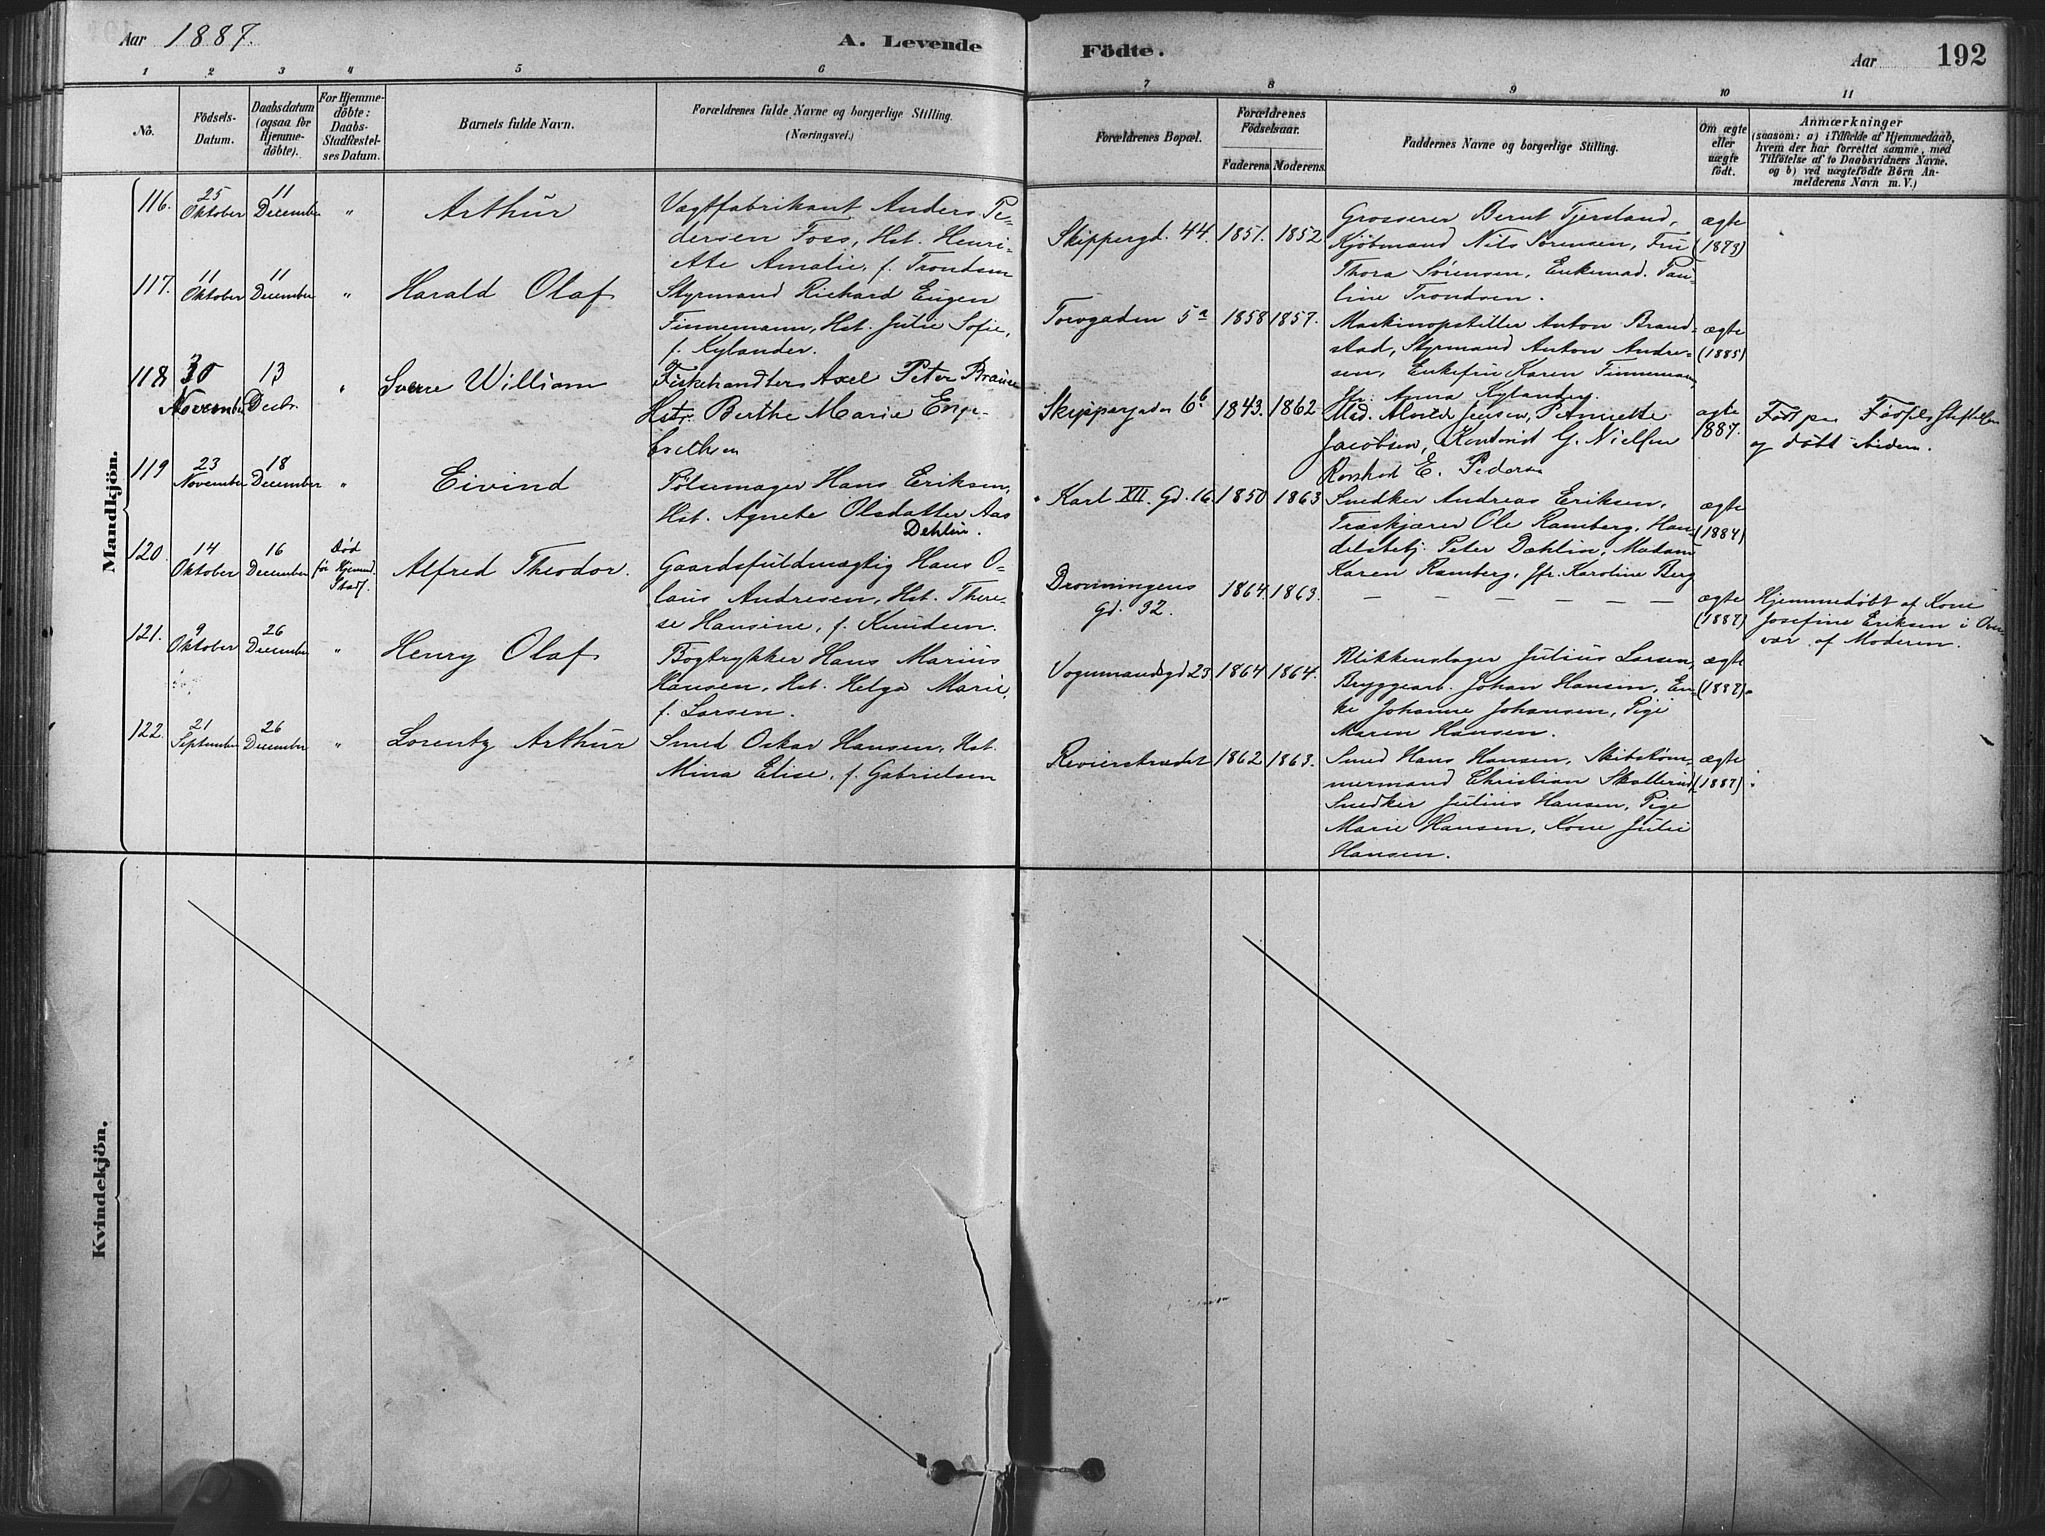 Aar 1887.
A. Levende Födte.
Aar 192
1 2 3 4 5 6 7 8 9 10 11
No.
Födsels-
Datum.
Daabsdatum
(ogsaa for
Hjemme-
döbte).
For Hjemme-
döbte:
Daabs-
Stadfæstel-
ses Datum.
Barnets fulde Navn.
Forældrenes fulde Navne og borgerlige Stilling.
(Næringsvei.)
Forældrenes Bopæl.
Forældrenes
Födselsaar.
Faderens Moderens.
Faddernes Navne og borgerlige Stilling.
Om ægte
eller
uægte
födt.
Anmærkninger
(saasom: a) i Tilfælde af Hjemmedaab,
hvem der har forrettet samme, med
Tilföielse af to Daabsvidners Navne.
og b) ved uægtefödte Börn An-
melderens Navn m. V.)
Mandkjön.
116.
25
Oktober
11
December
"
Arthur
Vægtfabrikant Anders Pe-
dersen Foss, Hst. Henri-
ette Amalie, f. Trondsen
Skippergd. 44.
1851.
1852
Grosserer Bernt Tjersland,
Kjöbmand Nils Sörensen, Fru
Thora Sørensen, Enkemad. Pau-
line Trondsen.
ægte
(1873)
117.
11
Oktober
11
December
"
Harald Olaf
Styrmand Richard Eugen
Finnemann, Hst. Julie Sofie,
f. Kylander.
Torvgaden 5a
1858
1857.
Maskinopstiller Anton Brand-
stad, Styrmand Anton Andre-
sen, Enkefru Karen Finnemann
Jfr. Anna Kylander.
ægte
(1885)
118
30
November
13
Decbr.
"
Sverre William
Fiskehandler Axel Peter
Hstr. Berthe Marie Enge-
brethsen
Skippergaden 6b
1843.
1862
Mad. Jensen,
Jacobsen, G. Nielsen
E. Pedersen
ægte
1887.
Födt paa Födselsstiftelsen
og döbt steden.
119
23
November
18
December
"
Eivind
Pölsemager Hans Eriksen,
Hst. Agnete Olsdatter Aas
Dehlin.
Karl XII. Gd. 16
1850
1863
Snedker Andreas Eriksen,
Træskjærer Ole Ramberg, Han-
delsbetj. Peter Dæhlin, Madam
Karen Ramberg, Jfr. Karoline Berg
ægte
(1884)
120.
14
Oktober
16
December
Död
før Hjemmed.
Stadf.
Alfred Theodor.
Gaardsfuldmægtig Hans O-
laus Andresen, Hst. There-
se Hansine, f. Knudsen.
Dronningens
Gd. 32.
1864.
1863.
— — — — — —
ægte
(1887)
Hjemmedöbt af Kone
Josefine Eriksen i Over-
vær af Moderen.
121.
9
Oktober
26
December
"
Henry Olaf
Bogtrykker Hans Marius
Hansen, Hst. Helga Marie,
f. Larsen.
Vognmandsgd 23
1864
1864.
Blikkenslager Julius Larsen,
Bryggearb. Johan Hansen, En-
ke Johanne Johansen, Pige
Maren Hansen.
ægte
(1887)
122.
21
September
26
December
"
Lorentz Arthur
Smed Oskar Hansen, Hst.
Mina Elise, f. Gabrielsen
Revierstrædet
1862
1863.
Smed Hans Hansen, Skibstöm-
mermand Christian Skallerud,
Snedker Julius Hansen, Pige
Marie Hansen, Kone Julie
Hansen.
ægte
(1887)
Kvindekjön.